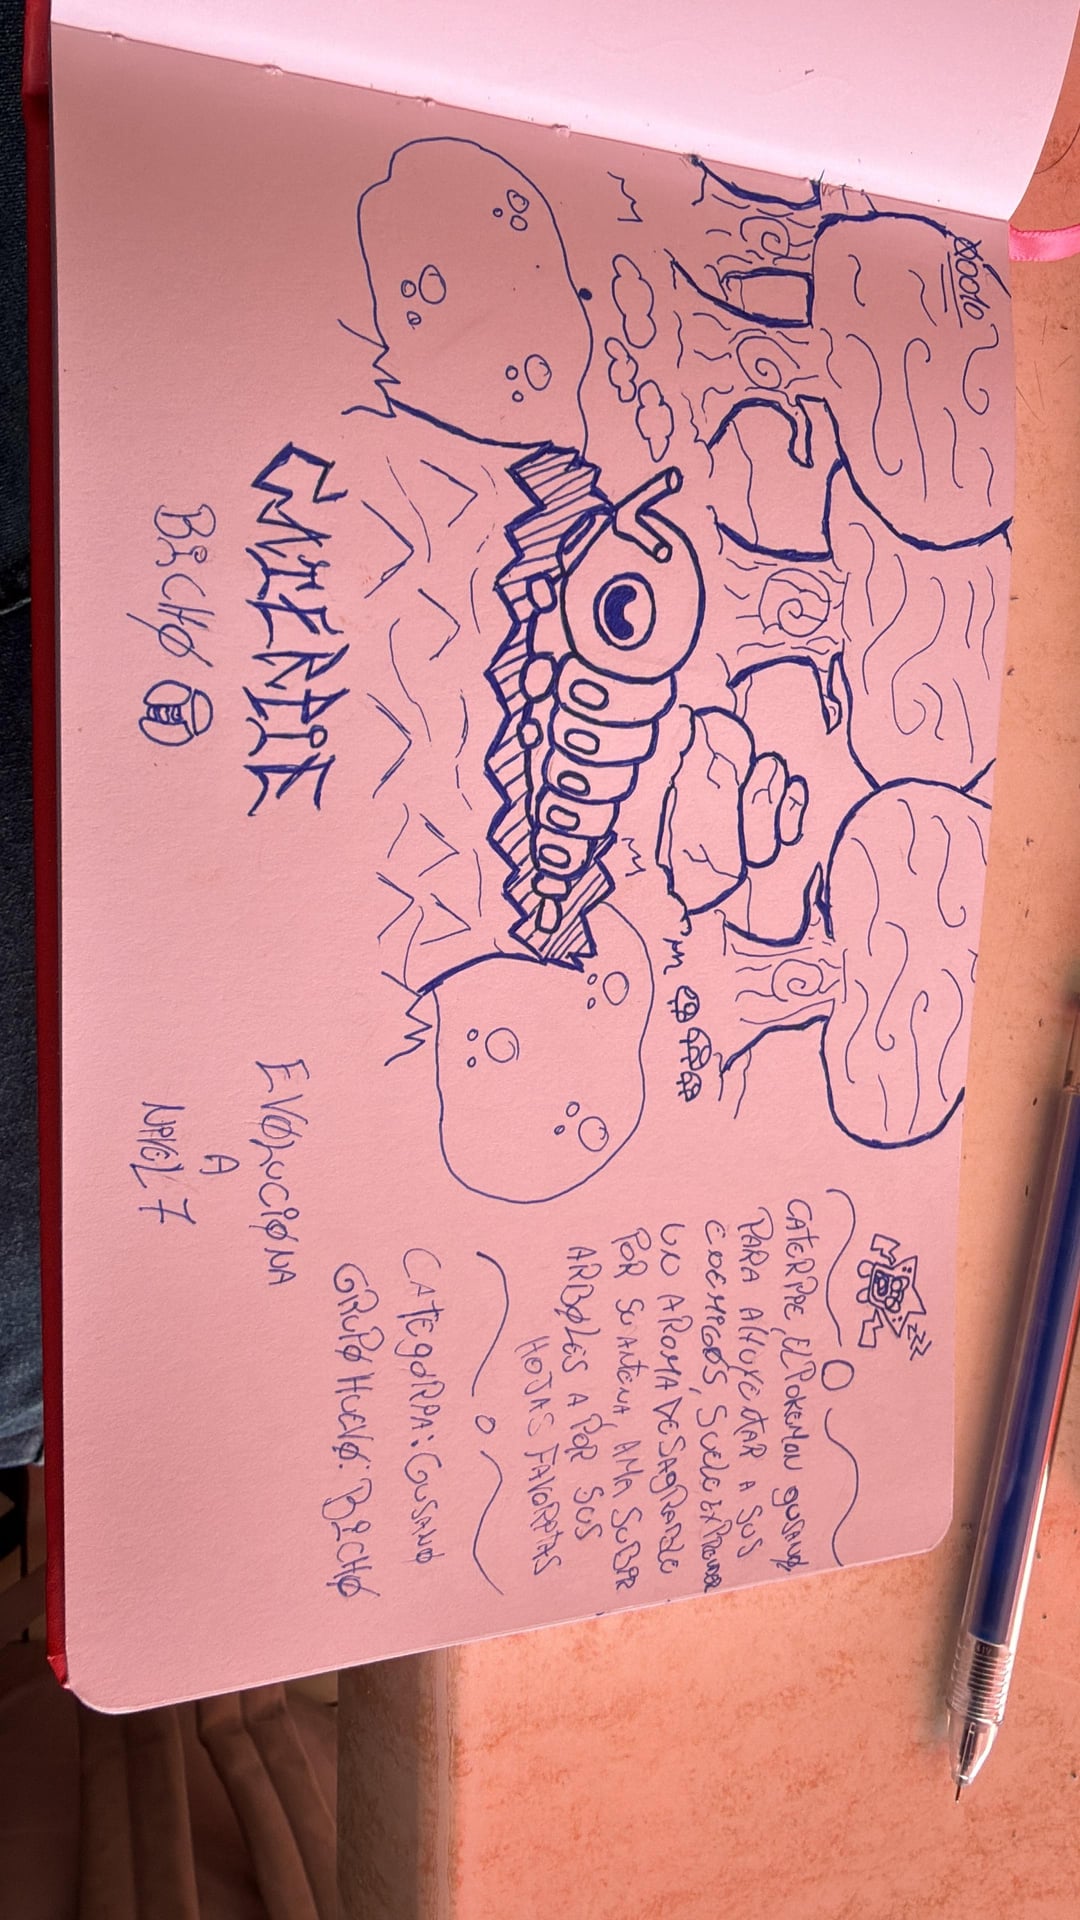 #0010
CATERPIE, EL POKEMON gUSANO
PARA AHUYENTAR A SUS
ENEMIGOS, SUELE EXPANDER
UN AROMA DESAgRADABLE
POR SU ANTENA, AMA SUBIR
ARBOLES A POR SUS
HOJAS FAVORITAS
CATEgORIA: GUSANO
GRUPO HUEVO: BICHO
CATERPIE
BICHO
EVOLUCIONA
A
NIVEL 7